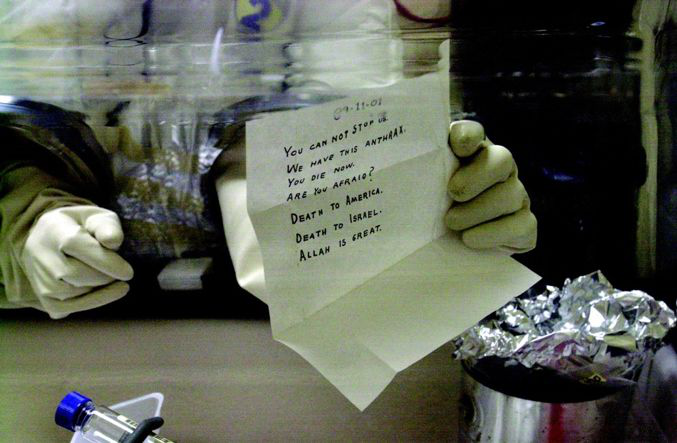 2
09-11-01
YOU CAN NOT STOP US.
WE HAVE THIS ANTHRAX.
YOU DIE NOW.
ARE YOU AFRAID?
DEATH TO AMERICA.
DEATH TO ISRAEL.
ALLAH IS GREAT.